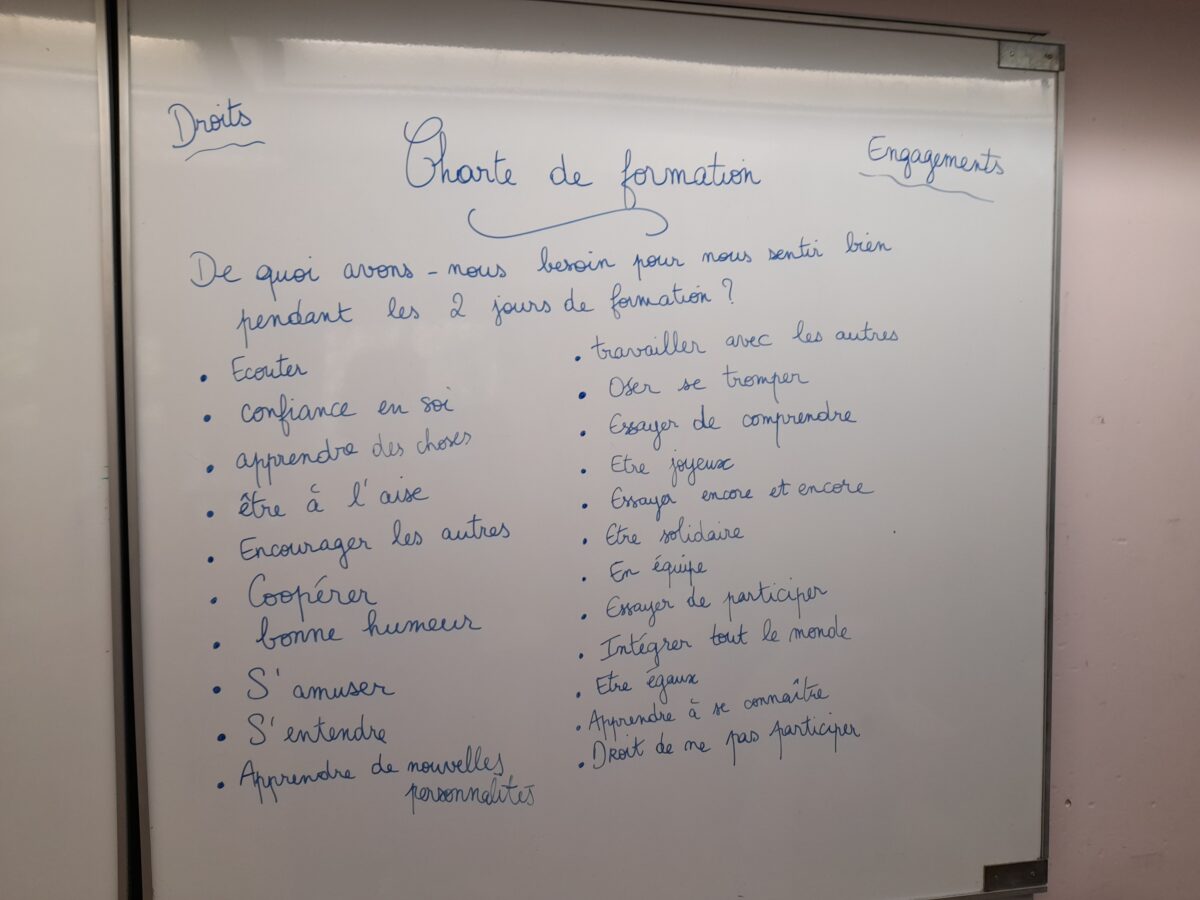 Droits
Charte de formation
Engagements
De quoi avons-nous besoin pour nous sentir bien
pendant les 2 jours de formation ?
• Ecouter
• confiance en soi
• apprendre des choses
• être à l'aise
• Encourager les autres
• Coopérer
• bonne humeur
• S'amuser
• S'entendre
• Apprendre de nouvelles
personnalités
• travailler avec les autres
• Oser se tromper
• Essayer de comprendre
• Etre joyeux
• Essayer encore et encore
• Etre solidaire
• En équipe
• Essayer de participer
• Intégrer tout le monde
• Etre égaux
• Apprendre à se connaître
• Droit de ne pas participer